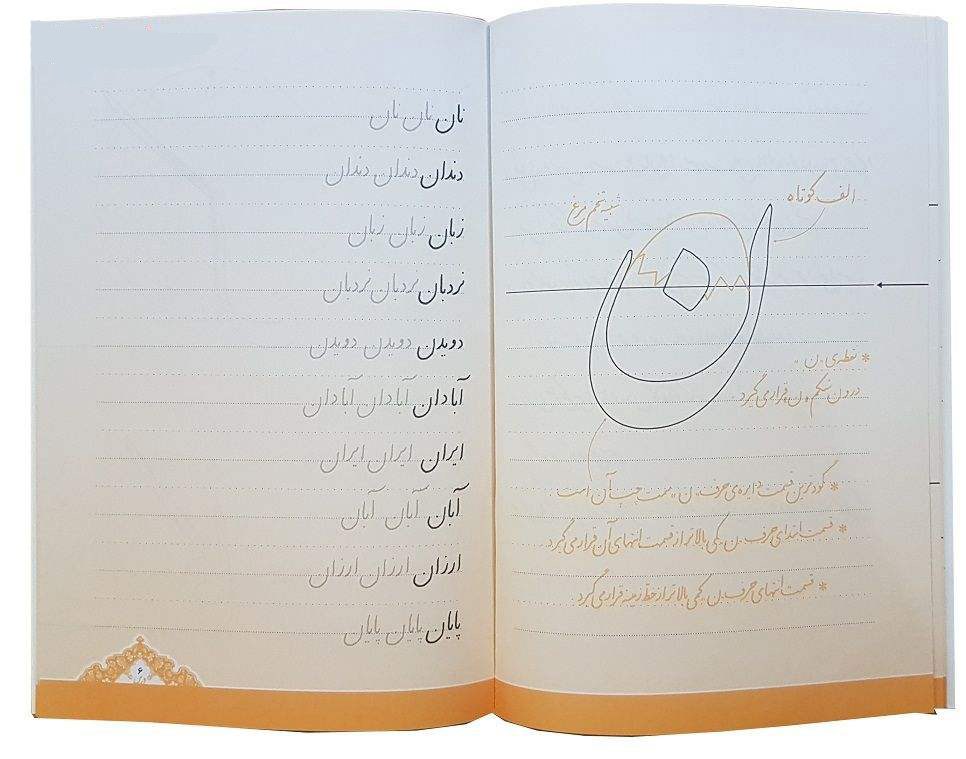 الف کوتاه
شبیه تخم مرغ
ن
* نقطه‌ی «ن»
درون شکم «ن» قرار می گیرد
* گودترین قسمت دایره ی حرف «ن» سمت چپ آن است
* قسمت ابتدای حرف «ن» کمی بالاتر از قسمت انتهای آن قرار می گیرد
* قسمت انتهای حرف «ن» کمی بالاتر از خط زمینه قرار می گیرد
نان نان نان
دندان دندان دندان
زبان زبان زبان
نردبان نردبان نردبان
دویدن دویدن دویدن
آبادان آبادان آبادان
ایران ایران ایران
آبان آبان آبان
ارزان ارزان ارزان
پایان پایان پایان
۶